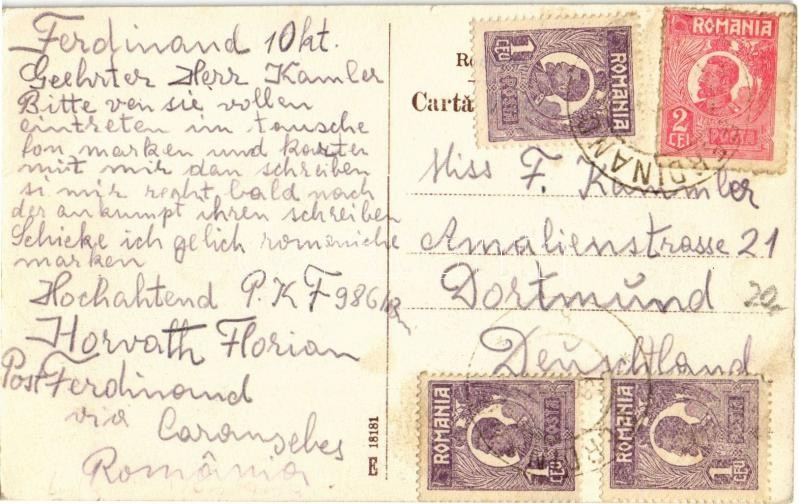 Ferdinand 10 kt.
Geehrter Herr Kamler
Bitte ven sie vollen
eintreten im tausche
fon marken und karten
mit mir dan schreiben
si mir reght bald nach
der ankumpt ihren schreiben
Schicke ich gelich romeniche
marken
Hochahtend P.K F986/R
Horvath Florian
Post Ferdinand
via Caransebes
România
E 18181
Cartă
Miss F. Kammler
Amalienstrasse 21
Dortmund
Deuschtland
20
ROMANIA
1 LEU
POSTA
ROMANIA
2 LEI
POSTA
FERDINAND
ROMANIA
1 LEU
POSTA
ROMANIA
1 LEU
POSTA